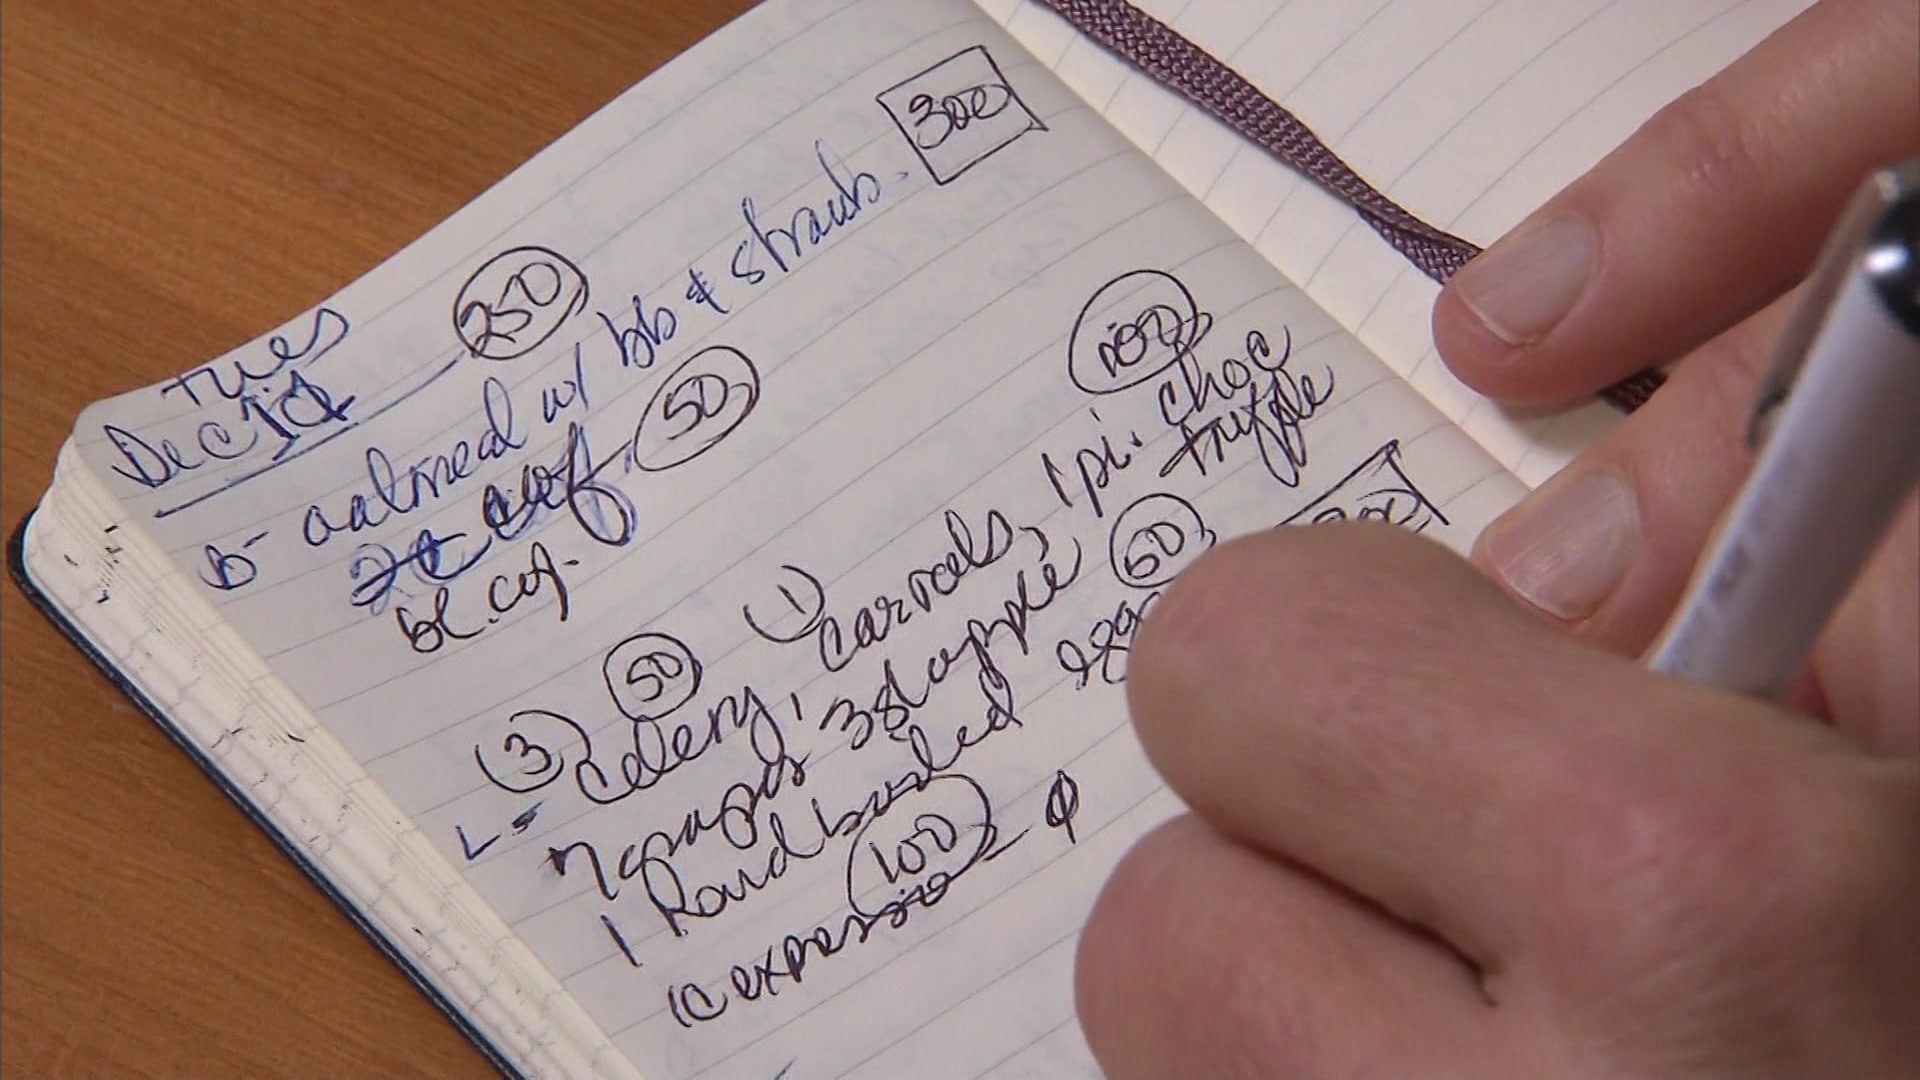 Tues
Dec 19
250
300
B- oatmeal w/ bb & strawb.
2c cof 50
bl. cof.
50 100
(3) celery, (1) carrots, 1 pi. choc truffle
L- 7 grapes 3 sl apple 50
1 hard boiled egg
100
1c expresso - φ